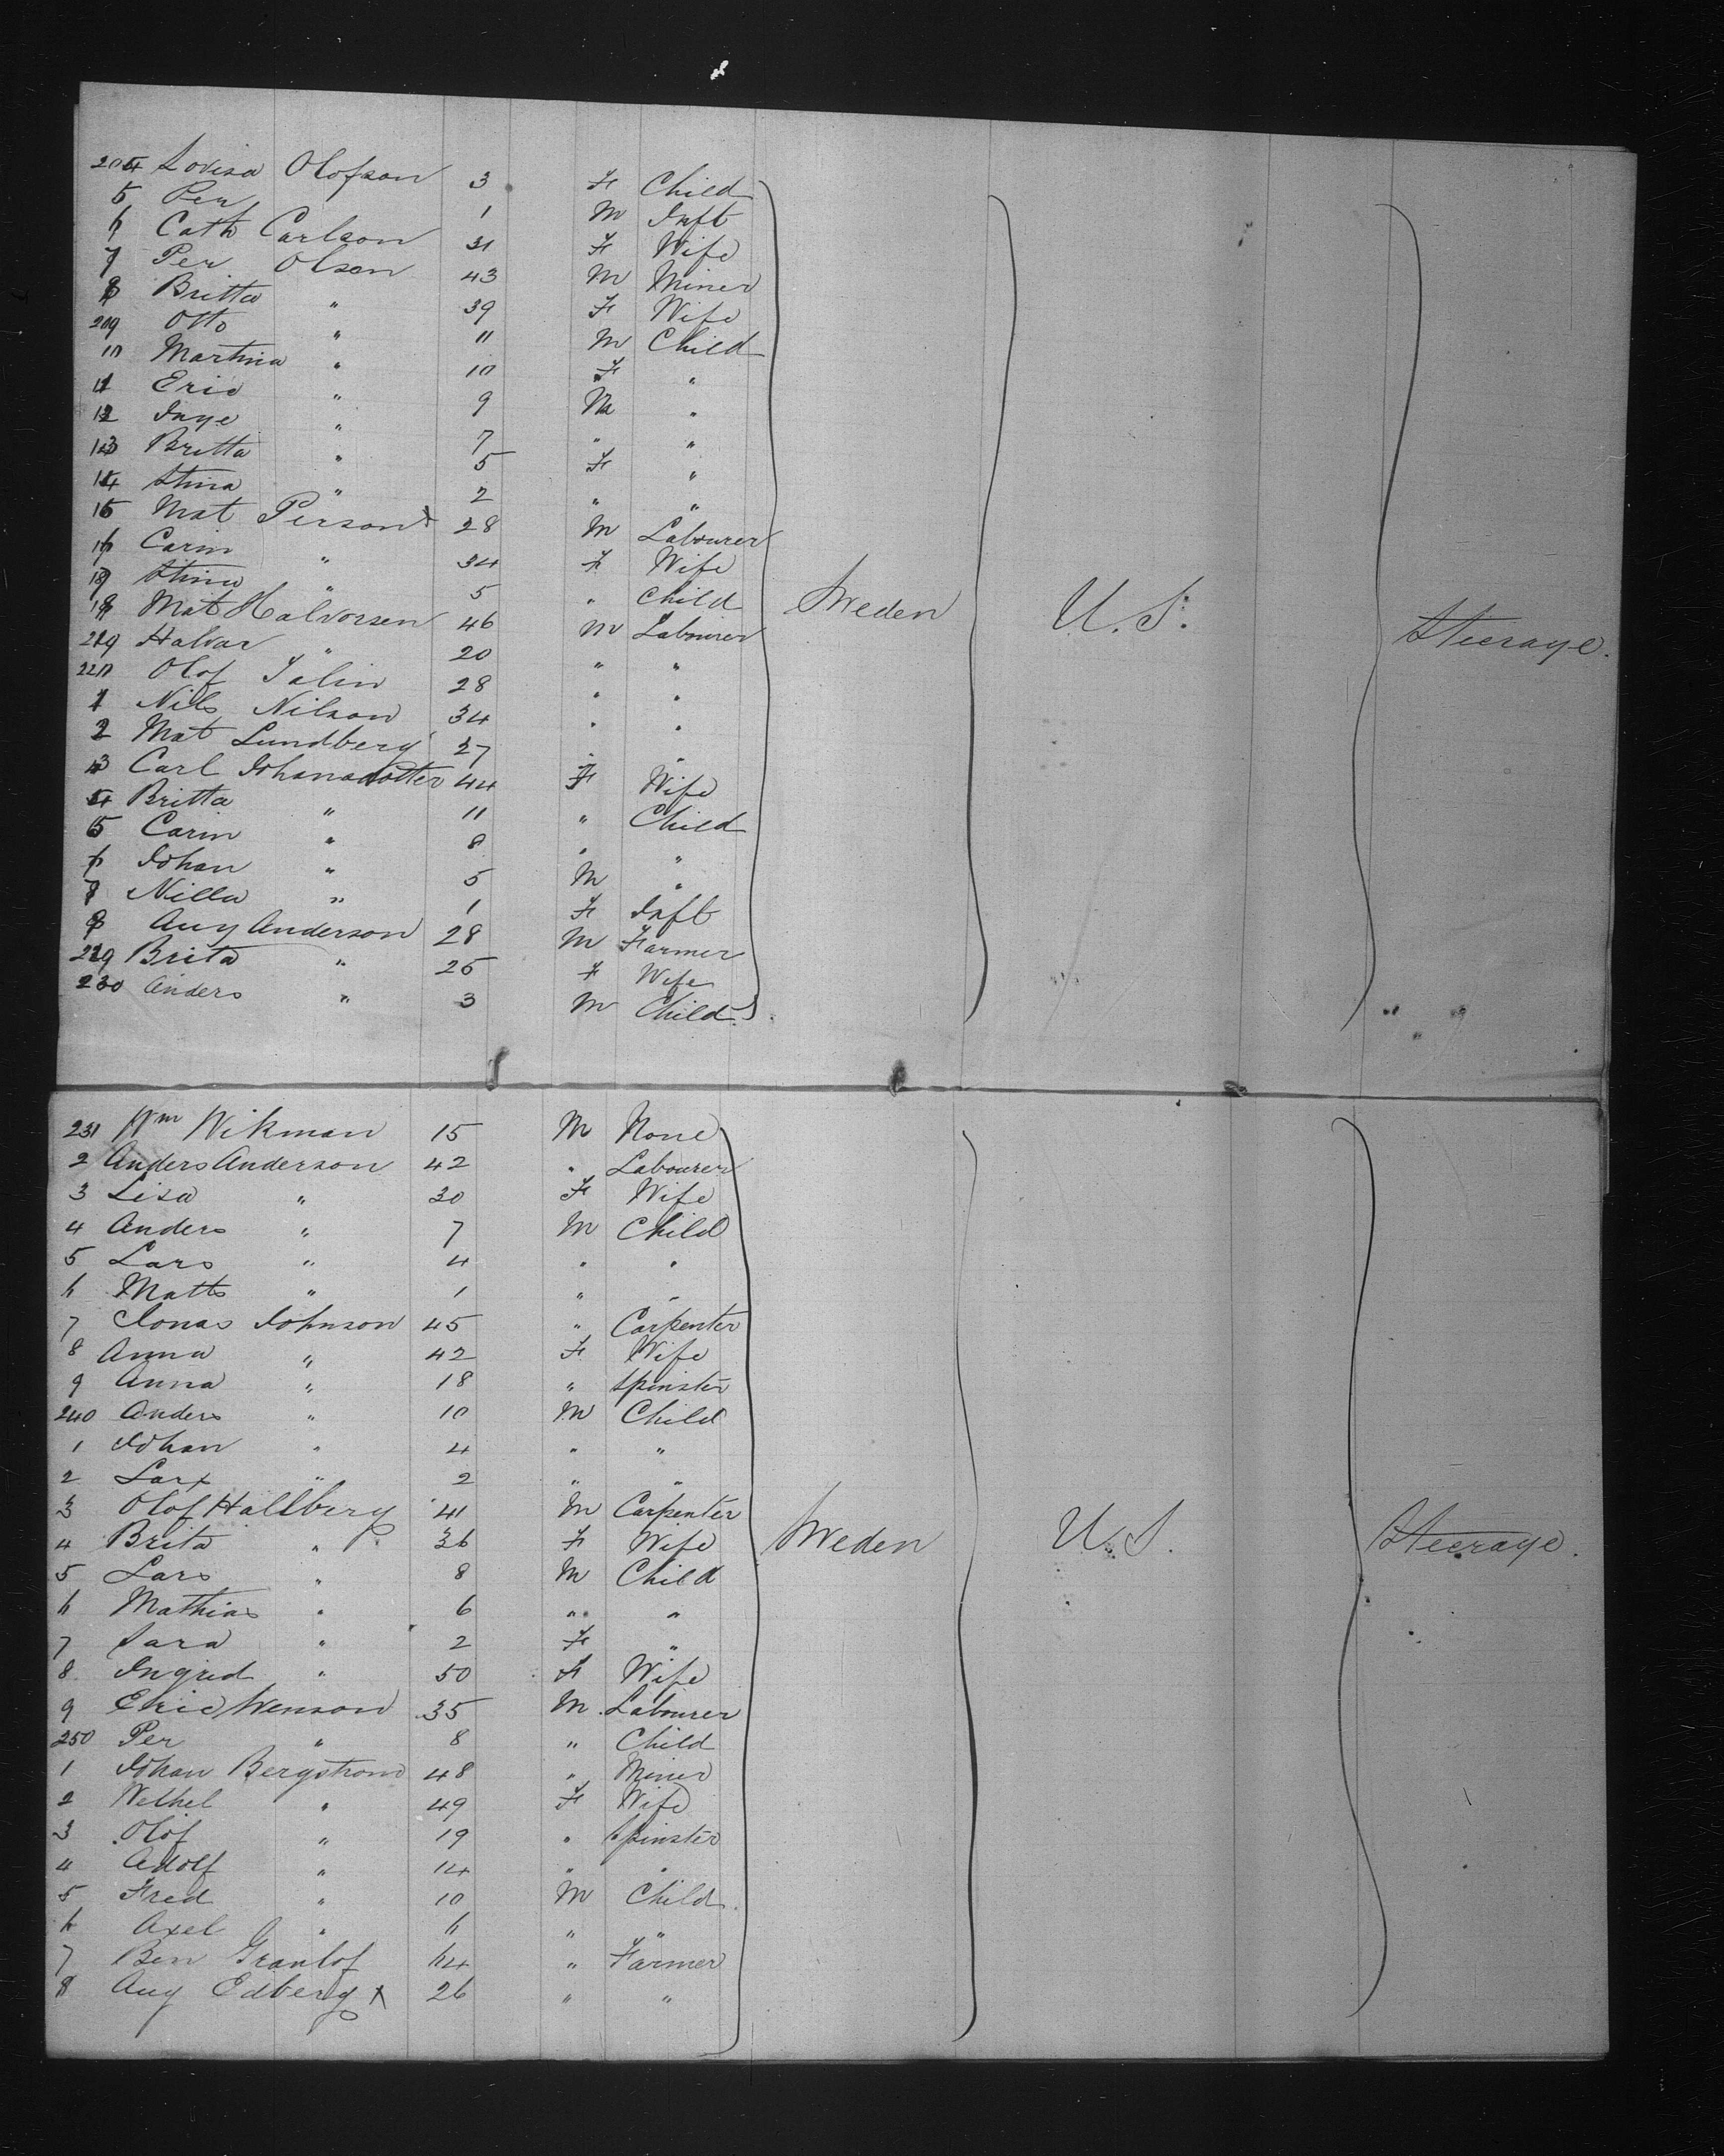 204 Lovisa Olofson 3 F Child
5 Per 1 M Inft
6 Cath Carlson 31 F Wife
7 Per Olsen 43 M Miner
8 Britta " 39 F Wife
209 Otto " 11 M Child
10 Martina " 10 F "
11 Eric " 9 M "
12 Inge " 7 " "
13 Britta " 5 F "
14 Stina " 2 " "
15 Mat Person x 28 M Labourer
16 Carin " 34 F Wife
17 Stina " 5 " Child
18 Mat Halvorsen 46 M Labourer
219 Halvar " 20 " "
220 Olof Jalin 28 " "
1 Nils Nilson 34 " "
2 Mat Lundberg 27 " "
3 Carl Johanadotter 44 F Wife
4 Britta " 11 " Child
5 Carin " 8 " "
6 Johan " 5 M "
7 Nilla " 1 F Inft
8 Aug Anderson 28 M Farmer
229 Brita " 25 F Wife
230 Anders " 3 M Child
Sweden U.S. Steerage.
231 Wm Wikman 15 M None
2 Anders Anderson 42 " Labourer
3 Lisa " 30 F Wife
4 Anders " 7 M Child
5 Lars " 4 " "
6 Matts " 1 " "
7 Jonas Johnson 45 " Carpenter
8 Anna " 42 F Wife
9 Anna " 18 " Spinster
240 Anders " 10 M Child
1 Johan " 4 " "
2 Lars " 2 " "
3 Olof Hallberg 41 M Carpenter
4 Brita " 36 F Wife
5 Lars " 8 M Child
6 Mathias " 6 " "
7 Sara " 2 F "
8 Ingrid " 50 F Wife
9 Eric Swenson 35 M Labourer
250 Per " 8 " Child
1 Johan Bergstrom 48 " Miner
2 " 49 F Wife
3 Olof " 19 " Spinster
4 Adolf " 14 " "
5 Fred " 10 M Child
6 Axel " 6 " "
7 Ben Granlof 64 " Farmer
8 Aug Edberg x 26 " "
Sweden U.S. Steerage.